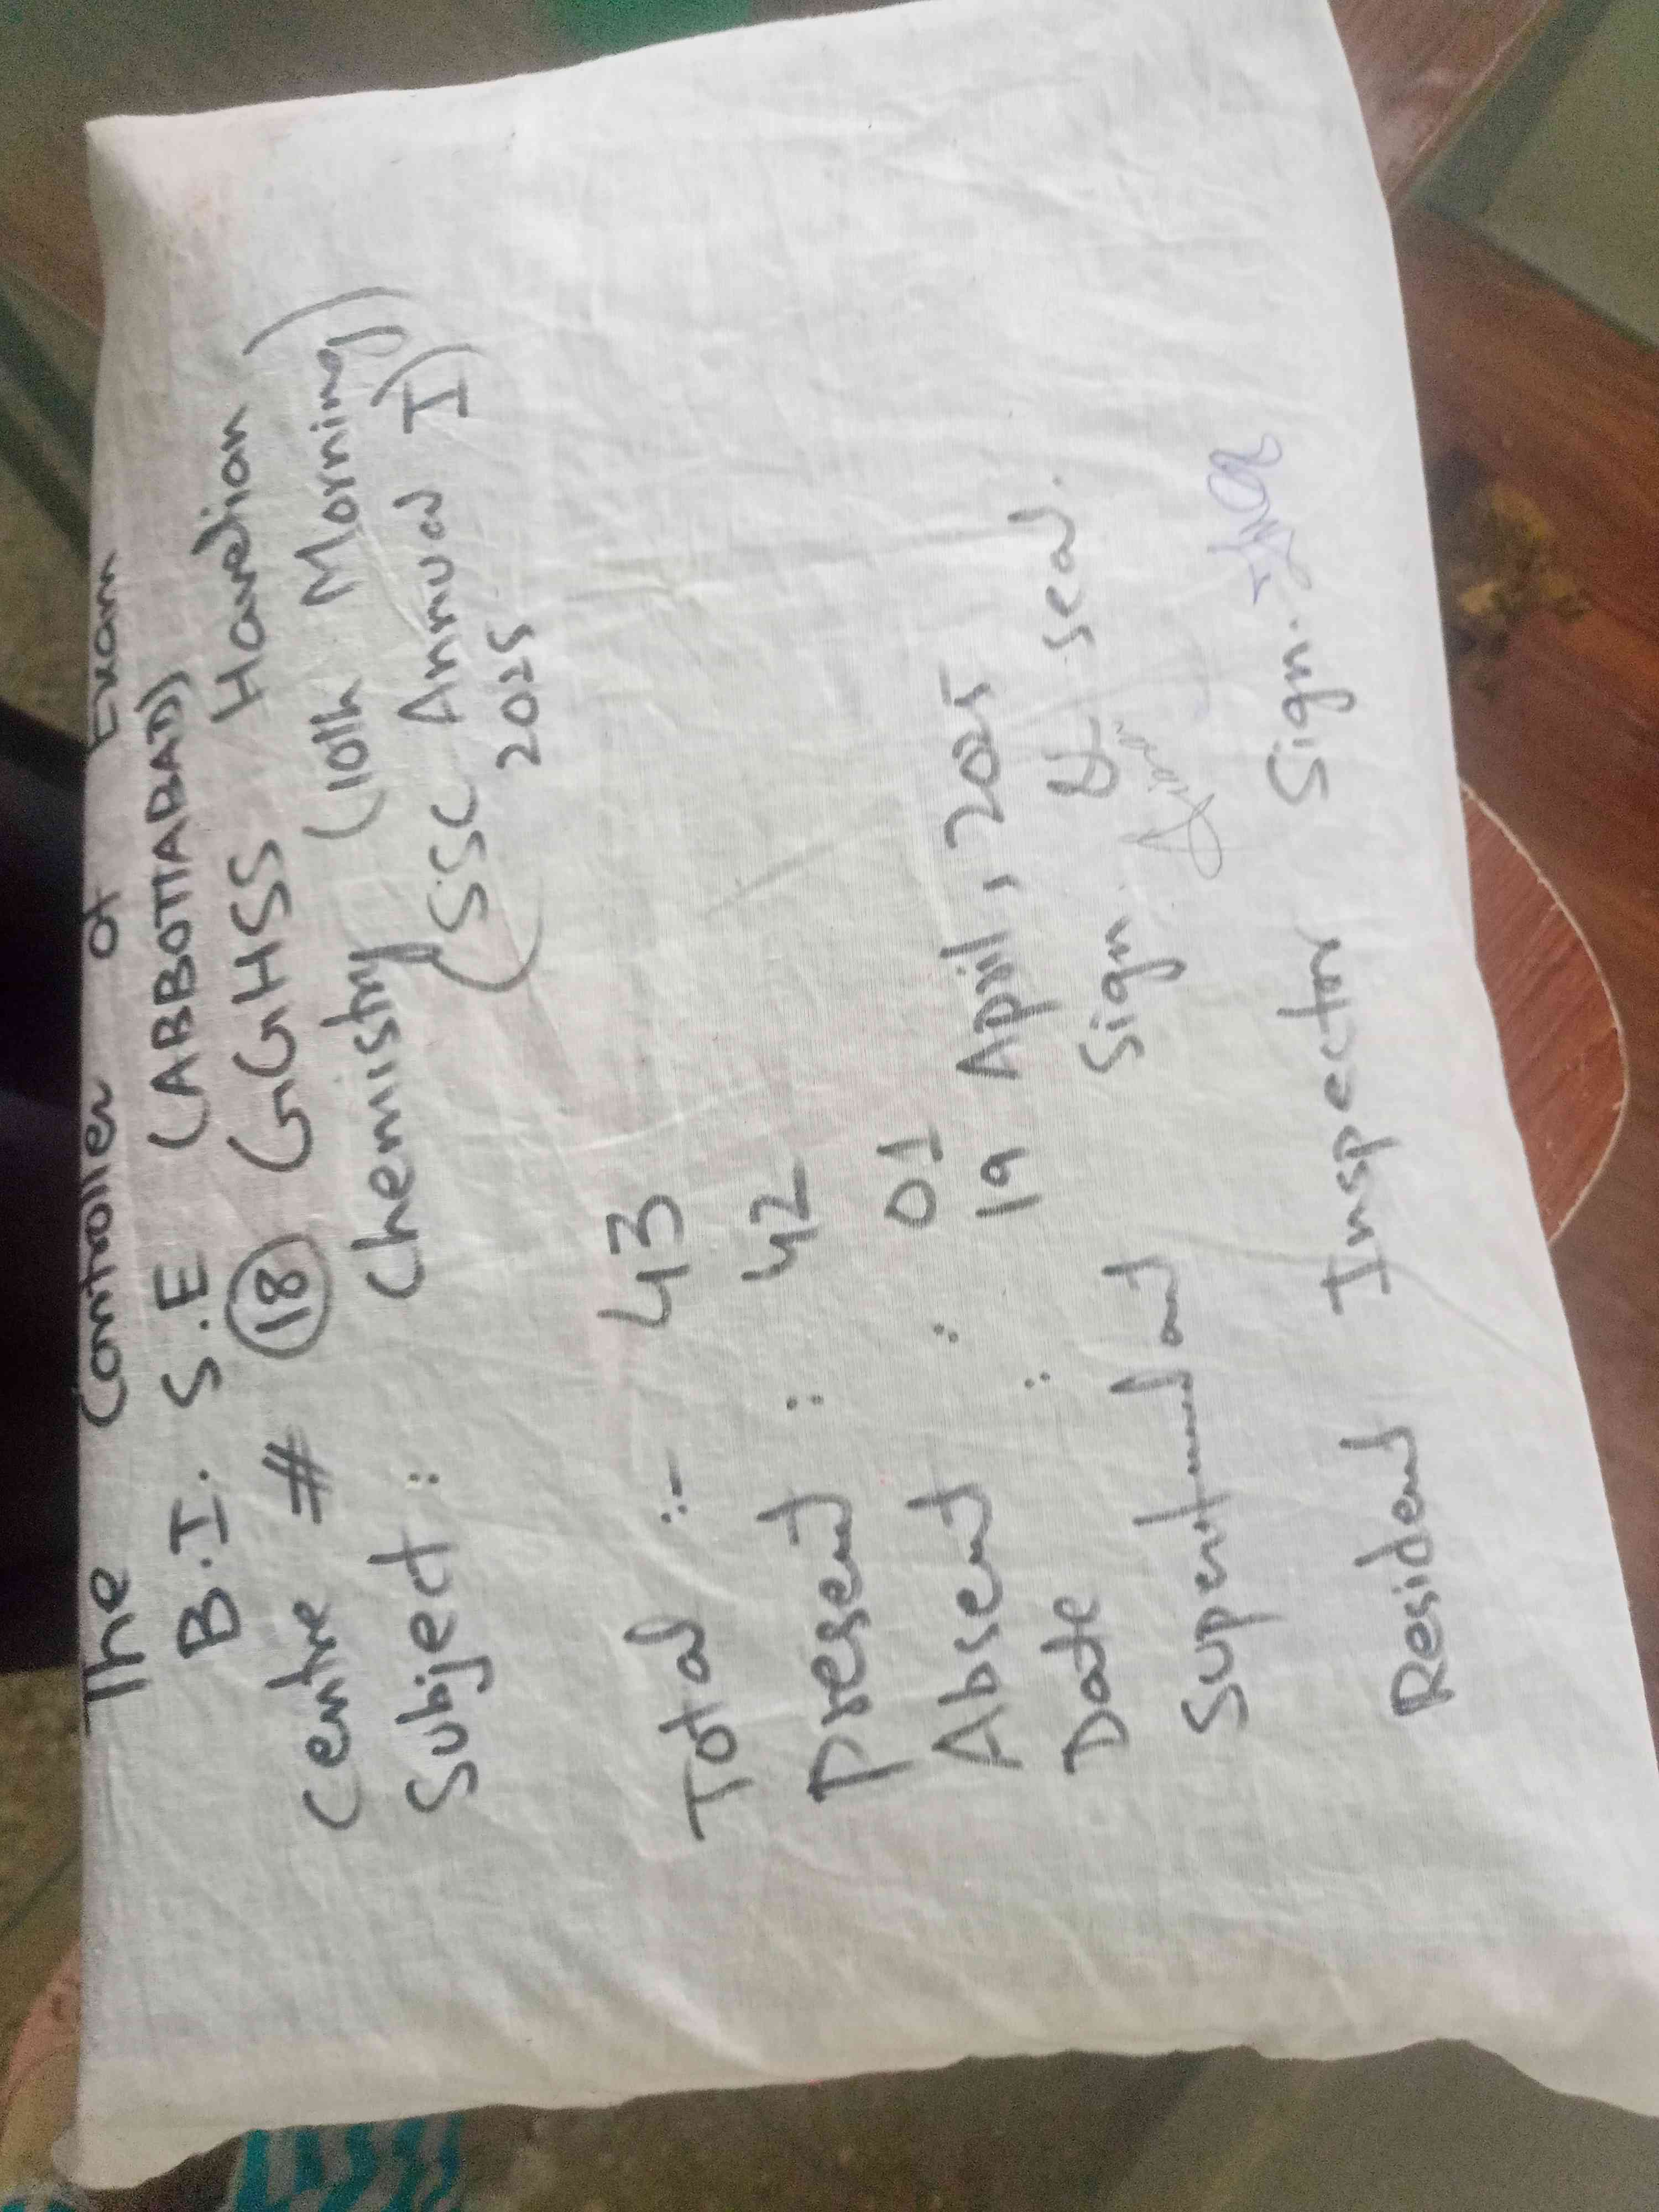 The Controller of Exam
B.I.S.E (ABBOTTABAD)
Centre # 18 (GGHSS Havelian)
Subject : Chemistry (10th Morning)
(SSC Annual I)
2025
Total :- 43
Present : 42
Absent : 01
Date : 19 April, 2025
Supertendant Sign. & Seal.
Resident Inspector Sign.